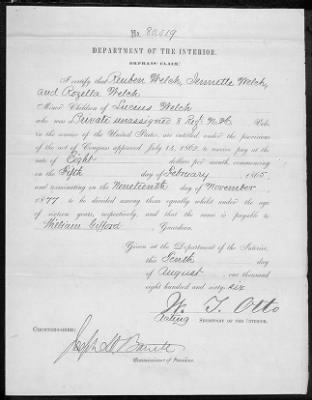 No. 82619
DEPARTMENT OF THE INTERIOR.
ORPHANS CLAIM.
I certify that Reuben Welch, Jennette Welch,
and Rozella Welch
Minor Children of Lucius Welch
who was Private unassigned 8 Reg't N.H. Vols.
in the service of the United States, are entitled under the provisions
of the act of Congress approved July 14, 1862, to receive pay at the
rate of Eight dollars per month, commencing
on the Fifth day of February, 1865,
and terminating on the Nineteenth day of November,
1877, to be divided among them equally whilst under the age
of sixteen years, respectively, and that the same is payable to
William Gifford, Guardian.
Given at the Department of the Interior,
this Tenth day
of August, one thousand
eight hundred and sixty six
W. T. Otto
Acting SECRETARY OF THE INTERIOR.
COUNTERSIGNED:
Joseph H. Barrett
Commissioner of Pensions.